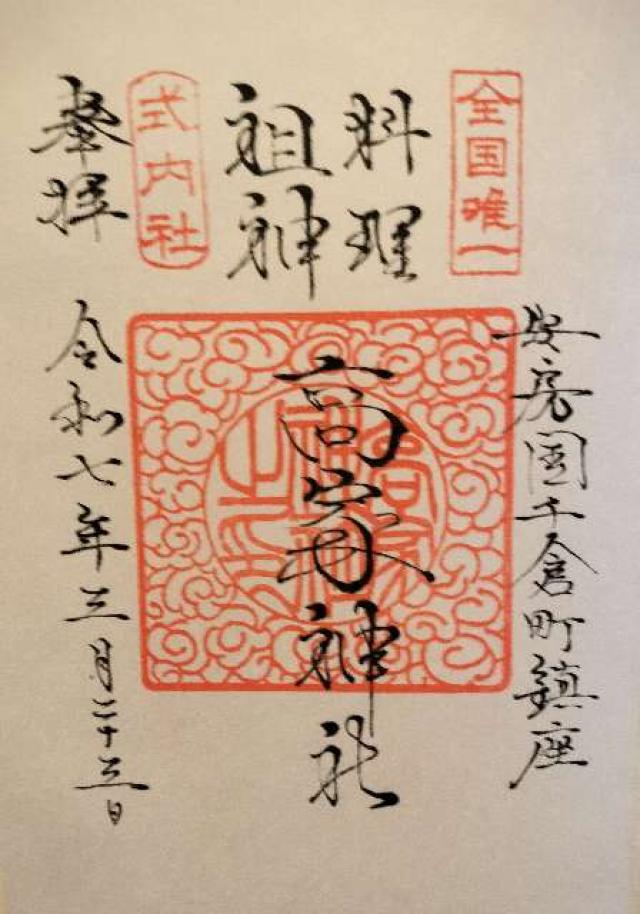 全国唯一
安房国千倉町鎮座
料理
祖神
高家神社
式内社
奉拝
令和七年三月二十三日